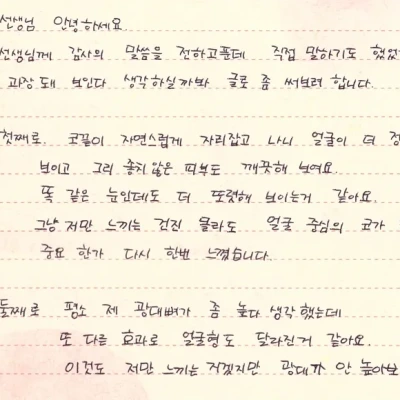 선생님 안녕하세요.
선생님께 감사의 말씀을 전하고픈데 직접 말하기도 했었
과장돼 보인다 생각하실까봐 글로 좀 써보려 합니다.
첫째로. 코끝이 자연스럽게 자리잡고 나니 얼굴이 더 정
보이고 그리 좋지 않은 피부도 깨끗해 보여요.
똑 같은 눈인데도 더 또렷해 보이는거 같아요.
그냥 저만 느끼는 건진 몰라도 얼굴 중심의 코가
중요 한가 다시 한번 느꼈습니다.
둘째로 평소 제 광대뼈가 좀 높다 생각했는데
또 다른 효과로 얼굴형도 달라진거 같아요.
이것도 저만 느끼는 거겠지만 광대가 안 높아보